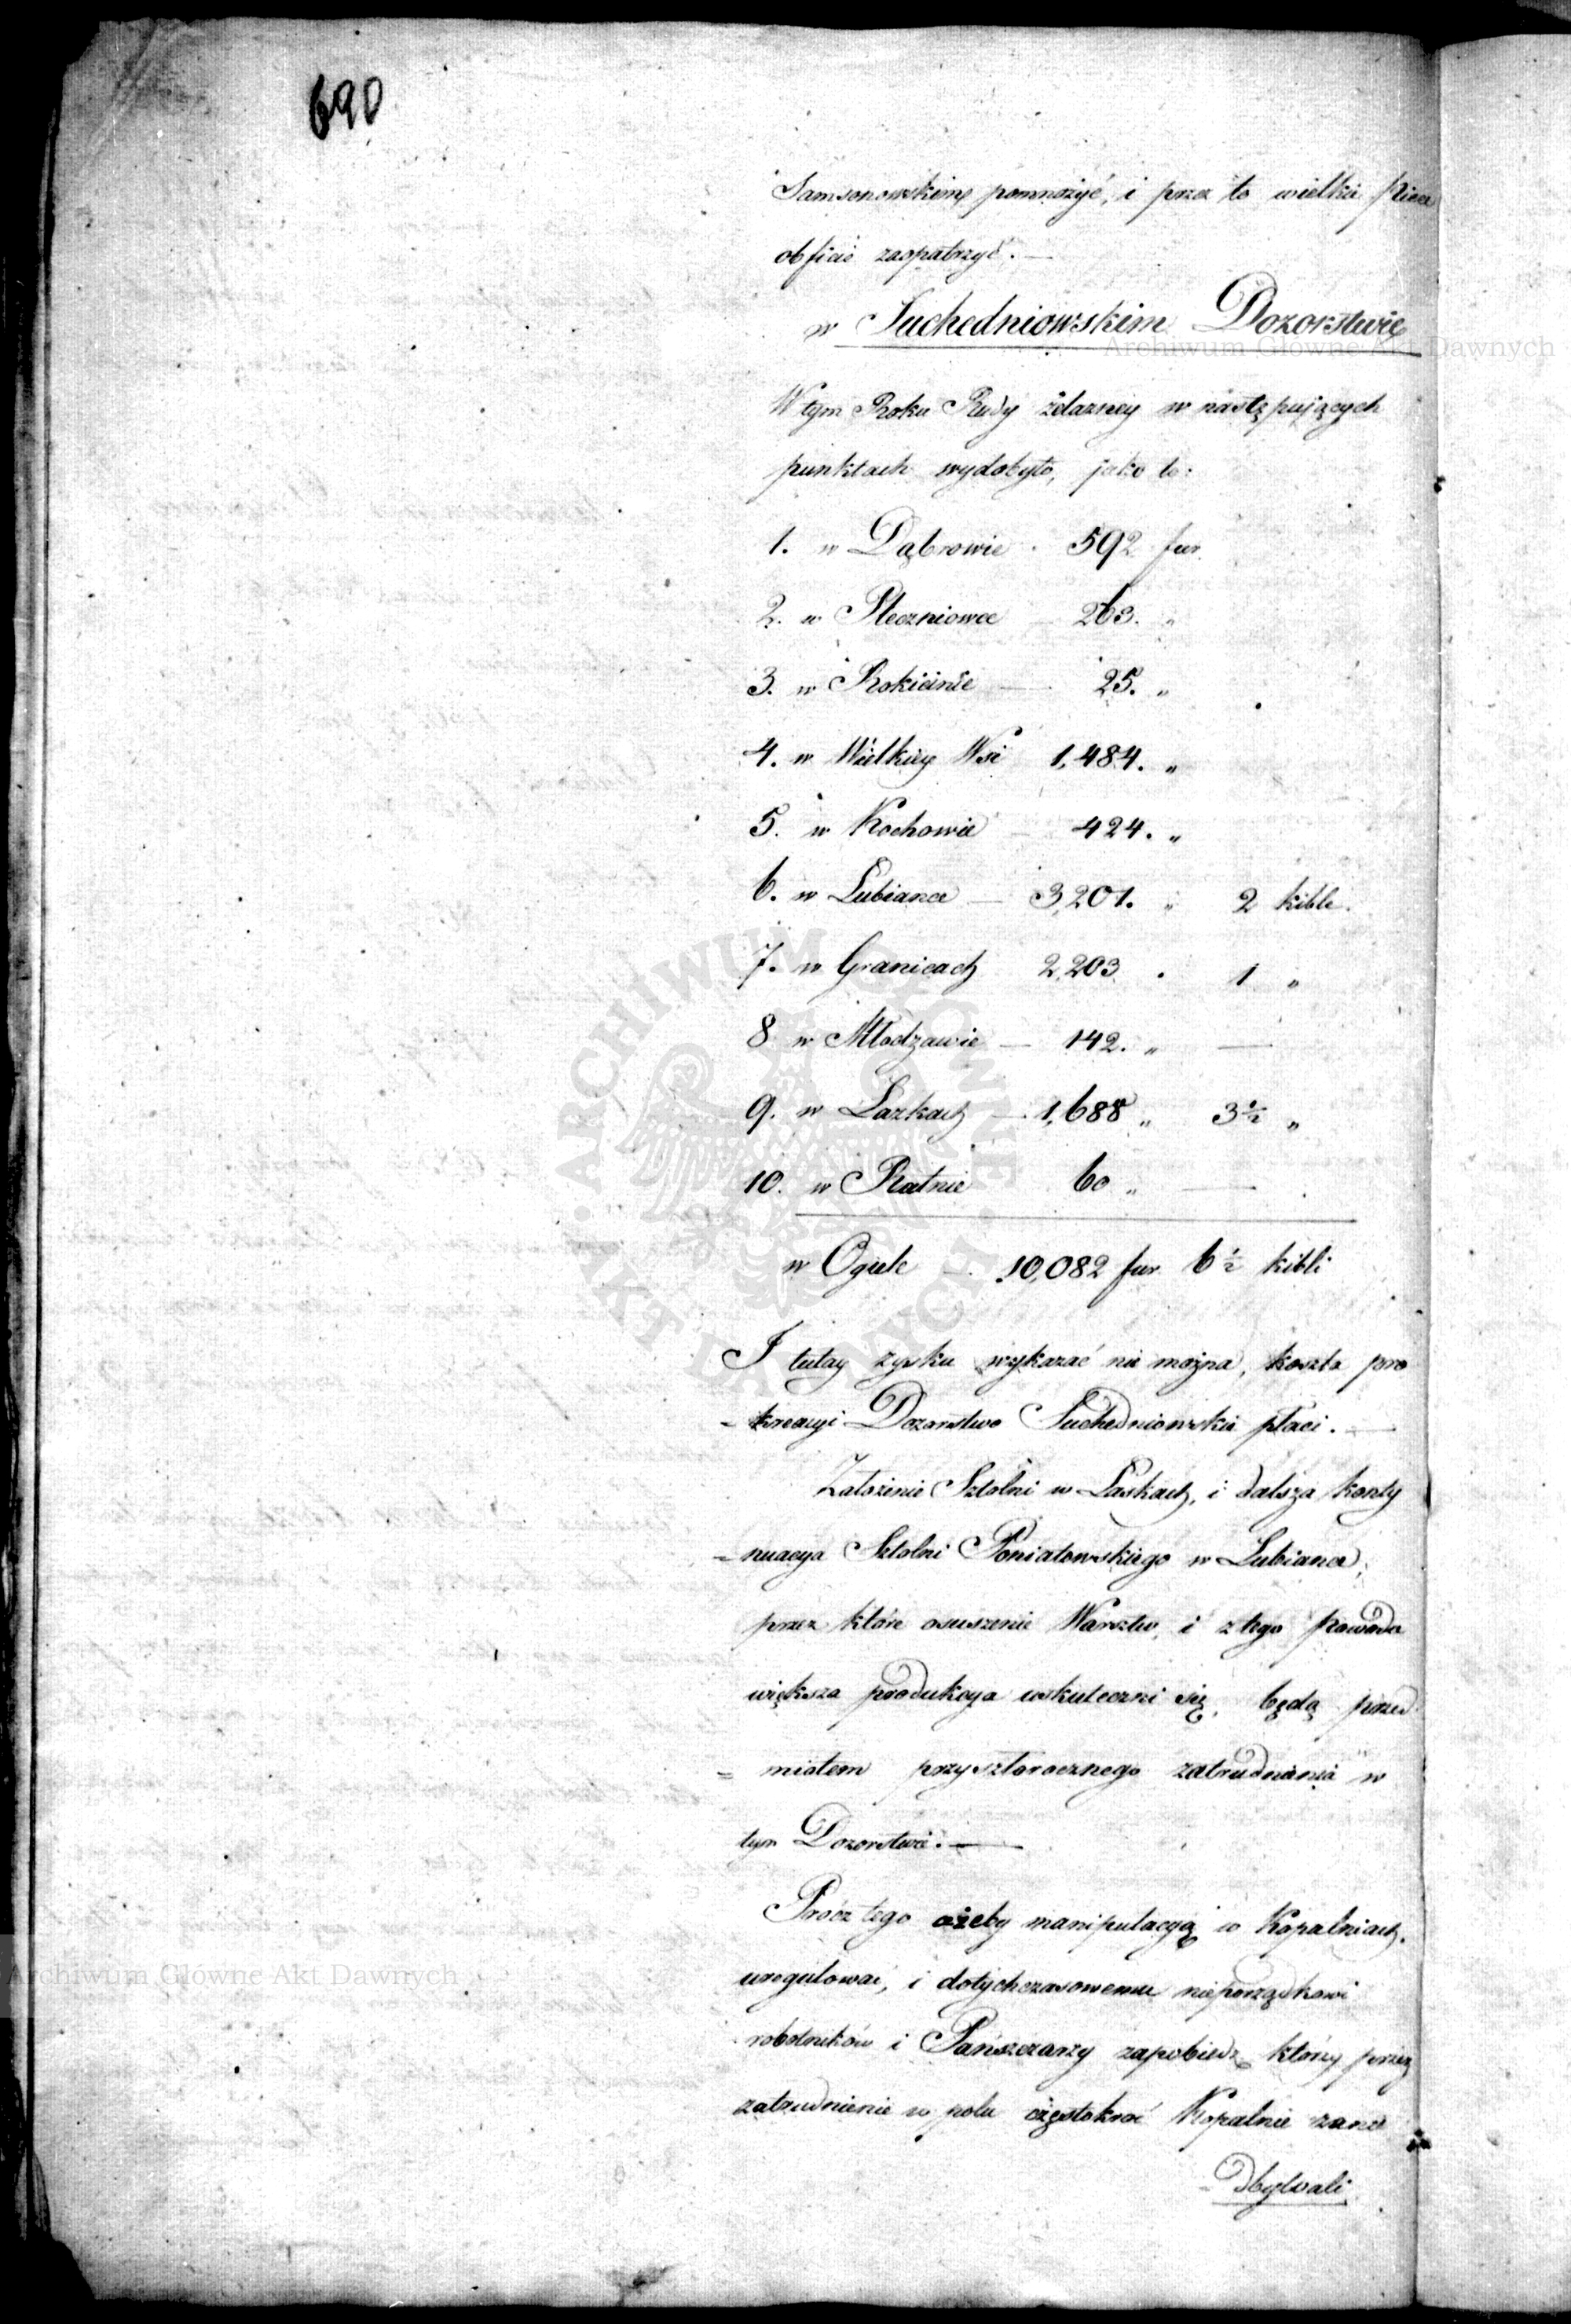 690
Samsonowskiey pomnożyć, i przez to wielki Piece
obficie zaopatrzyć. —
w Suchedniowskim Dozorstwie
W tym Roku Rudy żelazney w następujących
punktach wydobyto, jako to:
1. w Dąbrowie . 592 fur.
2. w Pleczniowce — 263. "
3. w Rokicinie — 25. "
4. w Wielkiey Wsi 1,484. "
5. w Kochowie — 424. "
6. w Lubiance — 3,201. " 2 kible.
7. w Granicach 2,203. " 1 "
8 w Młodzawie — 142. " —
9. w Łazkach — 1,688 " 3½ "
10. w Ratnie 60 " —
w Ogule — 10,082 fur 6½ kibli
I tutay zysku wykazać nie można, koszta pro
= kreacyi Dozorstwo Suchedniowskie płaci. —
Założenie Sztolni w Laskach, i dalsza konty
= nuacya Sztolni Poniatowskiego w Lubiance,
przez które osuszenie Warsztw, i z tego powodu
większa produkcya uskuteczni się, będą przed
= miotem przyszłorocznego zatrudnienia w
tym Dozorstwie. —
Prócz tego ażeby manipulacyą w Kopalniach
uregulować, i dotychczasowemu nieporządkowi
robotników i Pańszczarzy zapobiedz, którzy przez
zatrudnienie w polu częstokroć Kopalnie zanie
= dbywali
Archiwum Główne Akt Dawnych
Archiwum Główne Akt Dawnych
ARCHIWUM GŁÓWNE AKT DAWNYCH